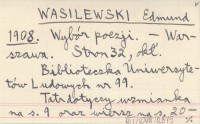 WASILEWSKI Edmund
1908. Wybór poezji. - War-
szawa. Stron 32, okł.
Biblioteczka Uniwersyte-
tów Ludowych nr 99.
Tatr dotyczy wzmianka
na s. 9 oraz wiersz na s. 20-